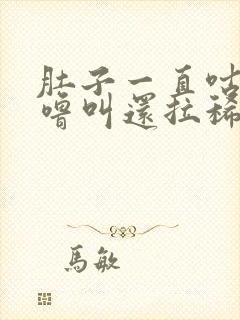 肚子一直咕
嚕叫還拉稀
馬敏